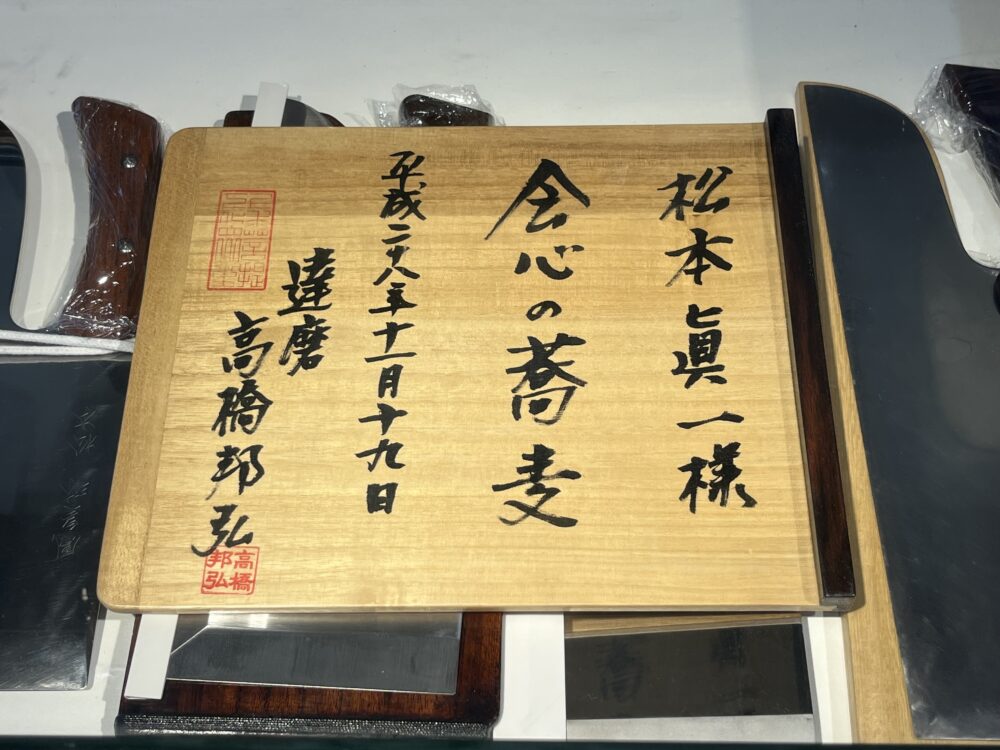 松本眞一様
会心の蕎麦
平成二十八年十一月十九日
達磨
高橋邦弘
高橋邦弘